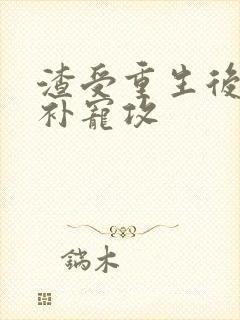 渣受重生後
补寵攻
鎢木